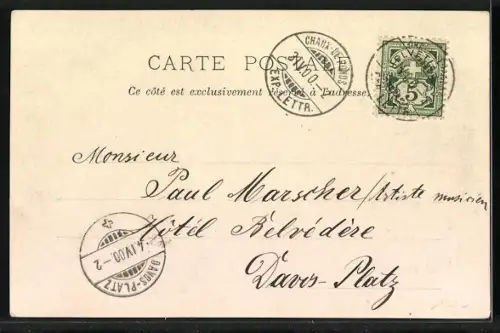 CARTE POSTALE
CHAUX-DE-FONDS
3.IV.00.-7
EXP. LETTR.
HELVETIA
5
Ce côté est exclusivement réservé à l'adresse.
Monsieur
Paul Marscher / Artiste musicien
Hôtel Belvédère
Davos-Platz
4.IV.00.-2
DAVOS-PLATZ